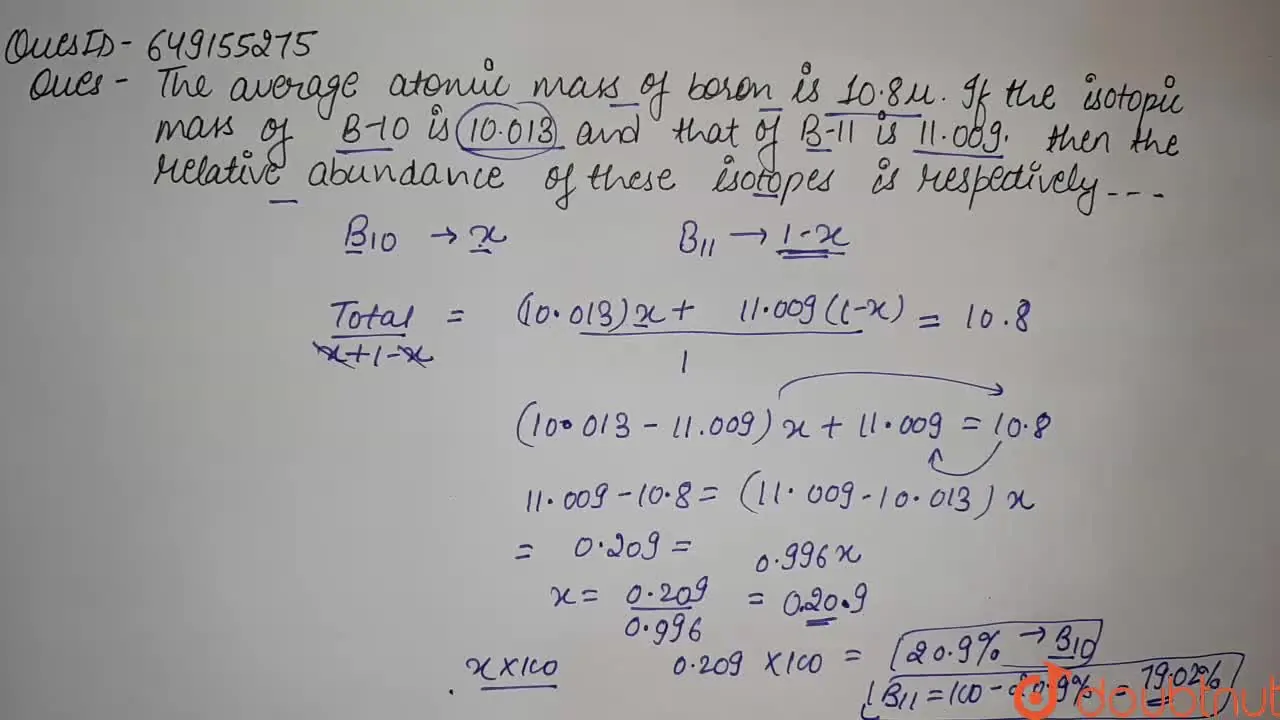 QuesID- 649155275
Ques - The average atomic mass of boron is 10.8u. If the isotopic
mass of B-10 is 10.013 and that of B-11 is 11.009. then the
relative abundance of these isotopes is respectively----
B10 → x B11 → 1-x
Total/x+1-x = (10.013)x + 11.009(1-x)/1 = 10.8
(10.013 - 11.009) x + 11.009 = 10.8
11.009 - 10.8 = (11.009 - 10.013) x
= 0.209 = 0.996x
x = 0.209/0.996 = 0.20.9
x×100 0.209 ×100 = 20.9% → B10
B11 = 100 - 20.9% = 79.02%
doubtnut